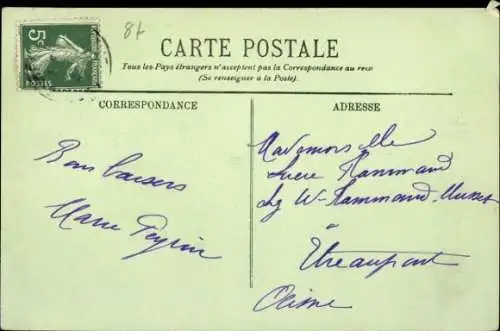 84
5c
CARTE POSTALE
Tous les Pays étrangers n'acceptent pas la Correspondance au rec
(Se renseigner à la Poste).
CORRESPONDANCE
ADRESSE
Bons baisers
Marie
Mademoiselle
Lucie Hammand
chez Mr Hammand
à
Etreaupont
Aisne